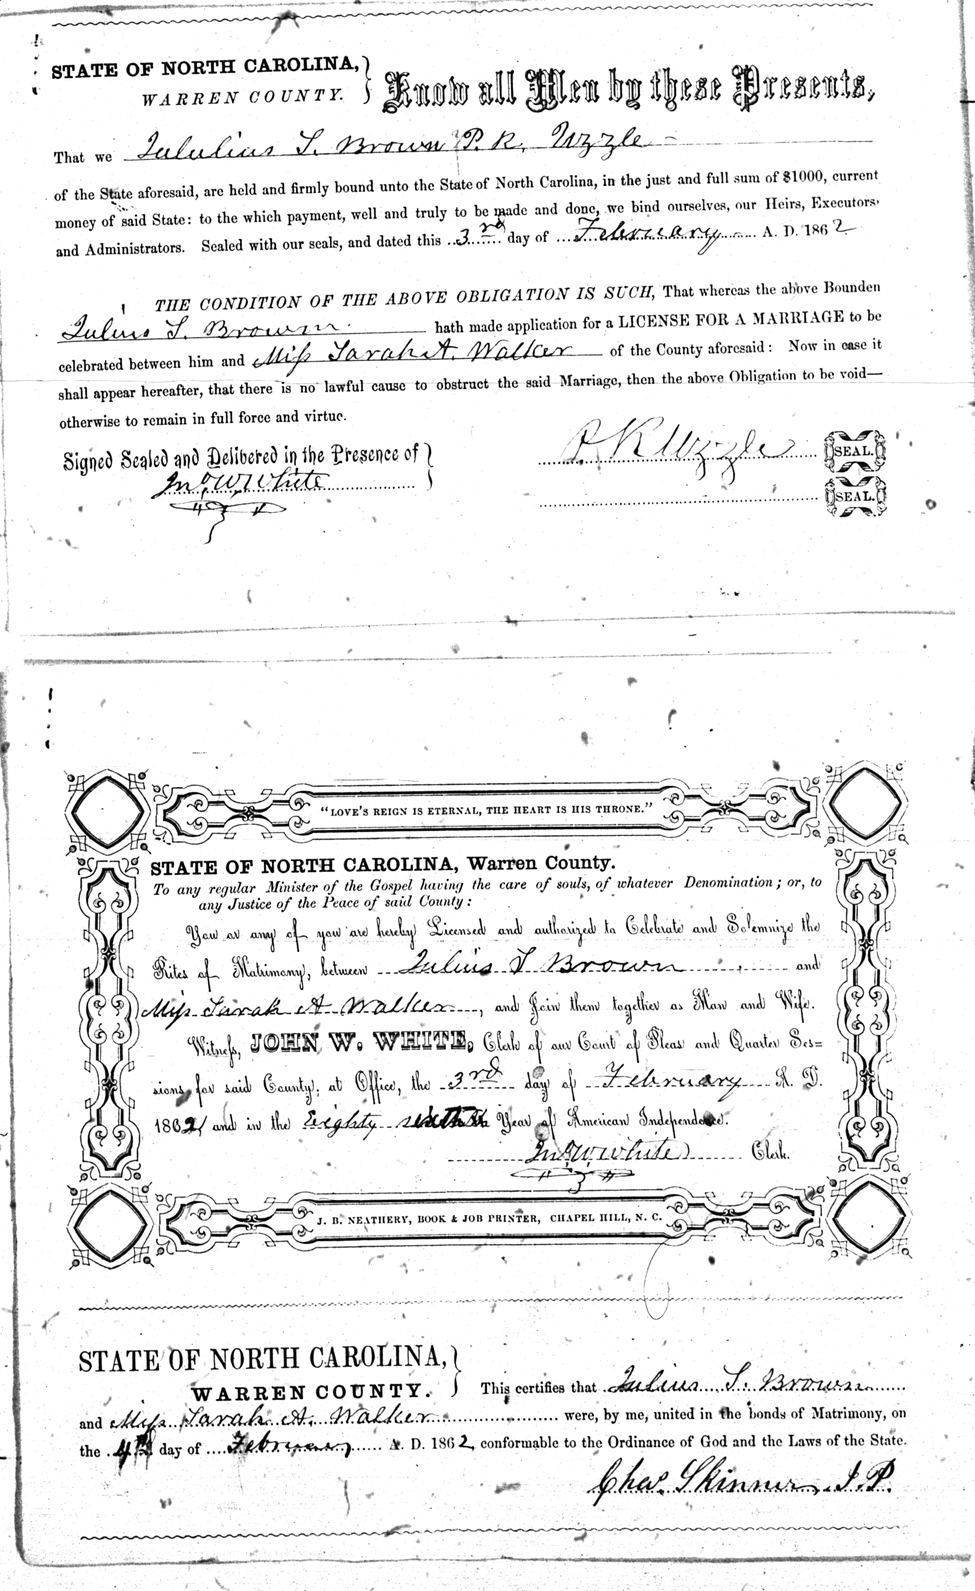 STATE OF NORTH CAROLINA,
WARREN COUNTY.
Know all Men by these Presents,
That we Julius S. Brown P. K. Uzzle
of the State aforesaid, are held and firmly bound unto the State of North Carolina, in the just and full sum of $1000, current
money of said State: to the which payment, well and truly to be made and done, we bind ourselves, our Heirs, Executors,
and Administrators. Sealed with our seals, and dated this 3rd day of February A. D. 1862
THE CONDITION OF THE ABOVE OBLIGATION IS SUCH, That whereas the above Bounden
Julius S. Brown hath made application for a LICENSE FOR A MARRIAGE to be
celebrated between him and Miss Sarah A. Walker of the County aforesaid: Now in case it
shall appear hereafter, that there is no lawful cause to obstruct the said Marriage, then the above Obligation to be void—
otherwise to remain in full force and virtue.
Signed Sealed and Delibered in the Presence of
P K Uzzle SEAL.
Jno. W. White
SEAL.
"LOVE'S REIGN IS ETERNAL, THE HEART IS HIS THRONE."
STATE OF NORTH CAROLINA, Warren County.
To any regular Minister of the Gospel having the care of souls, of whatever Denomination; or, to
any Justice of the Peace of said County:
You or any of you are hereby Licensed and authorized to Celebrate and Solemnize the
Rites of Matrimony, between Julius S Brown and
Miss Sarah A Walker, and Join them together as Man and Wife.
Witness, JOHN W. WHITE, Clerk of our Court of Pleas and Quarter Ses=
sions for said County, at Office, the 3rd day of February A. D.
1862 and in the Eighty sixth Year of American Independence.
Jno. W. White Clerk.
J. B. NEATHERY, BOOK & JOB PRINTER, CHAPEL HILL, N. C.
STATE OF NORTH CAROLINA,
WARREN COUNTY.
This certifies that Julius S. Brown
and Miss Sarah A. Walker were, by me, united in the bonds of Matrimony, on
the 4th day of February A. D. 1862 conformable to the Ordinance of God and the Laws of the State.
Chas. Skinner J. P.